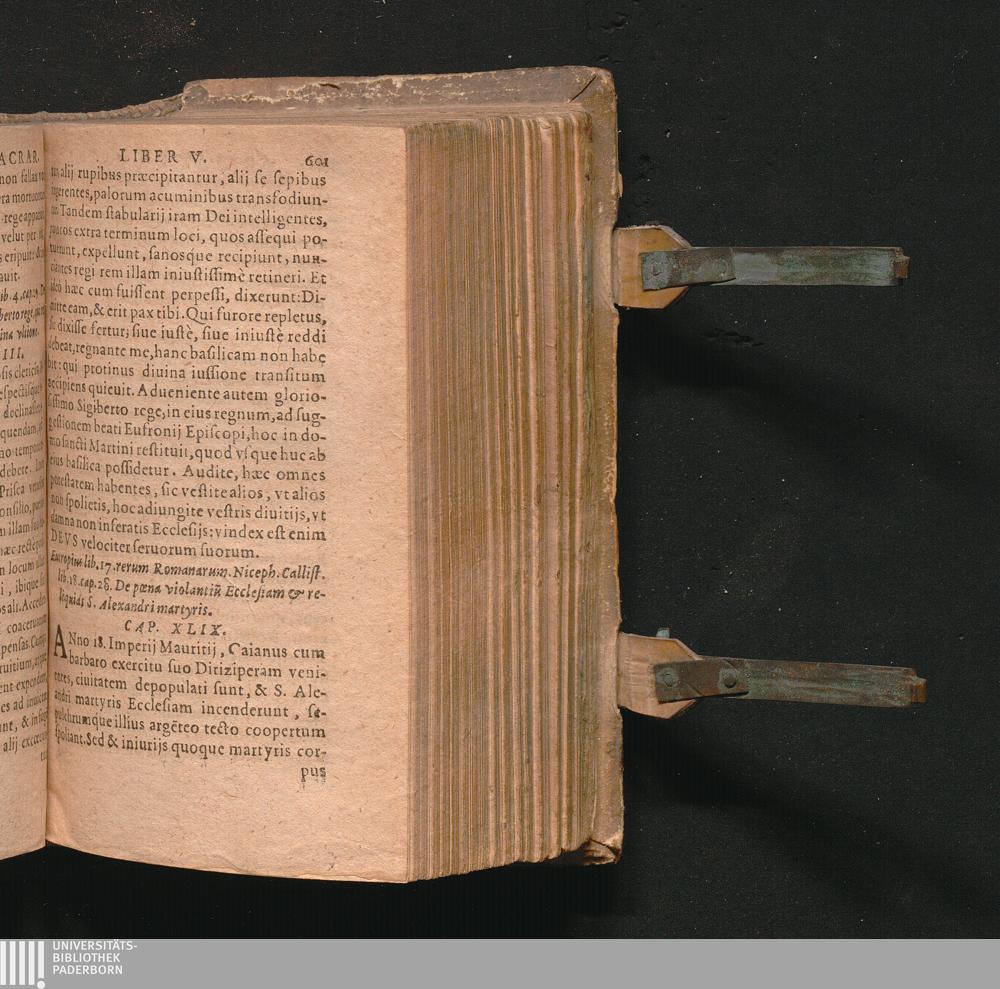 ACRAR.
non fallau
era mortuorum
rege
velut per
s eripunt
auit.
ib. 4. cap. 19.
berto rege,
ina vltione.
III.
LIBER V. 601
tur, alij rupibus præcipitantur, alij se sepibus
ingerentes, palorum acuminibus transfodiun-
tur. Tandem stabularij iram Dei intelligentes,
paucos extra terminum loci, quos assequi po-
tuerunt, expellunt, sanosque recipiunt, nun-
ciantes regi rem illam iniustissimè retineri. Et
ideò hæc cum fuissent perpessi, dixerunt: Di-
mitte eam, & erit pax tibi. Qui furore repletus,
sic dixisse fertur; siue iustè, siue iniustè reddi
debeat, regnante me, hanc basilicam non habe
bit: qui protinus diuina iussione transitum
accipiens quieuit. Adueniente autem glorio-
sissimo Sigiberto rege, in eius regnum, ad sug-
gestionem beati Eufronij Episcopi, hoc in do-
mo sancti Martini restituit, quod vsque huc ab
eius basilica possidetur. Audite, hæc omnes
potestatem habentes, sic vestite alios, vt alios
non spolietis, hoc adiungite vestris diuitijs, vt
damna non inferatis Ecclesijs: vindex est enim
DEVS velociter seruorum suorum.
Eutropius lib. 17. rerum Romanarum. Niceph. Callist.
lib. 18. cap. 28. De pœna violantiũ Ecclesiam & re-
liquias S. Alexandri martyris.
CAP. XLIX.
ANno 18. Imperij Mauritij, Caianus cum
barbaro exercitu suo Ditiziperam veni-
entes, ciuitatem depopulati sunt, & S. Ale-
xandri martyris Ecclesiam incenderunt, se-
pulchrumque illius argẽteo tecto coopertum
spoliant. Sed & iniurijs quoque martyris cor-
pus
UNIVERSITÄTS-
BIBLIOTHEK
PADERBORN